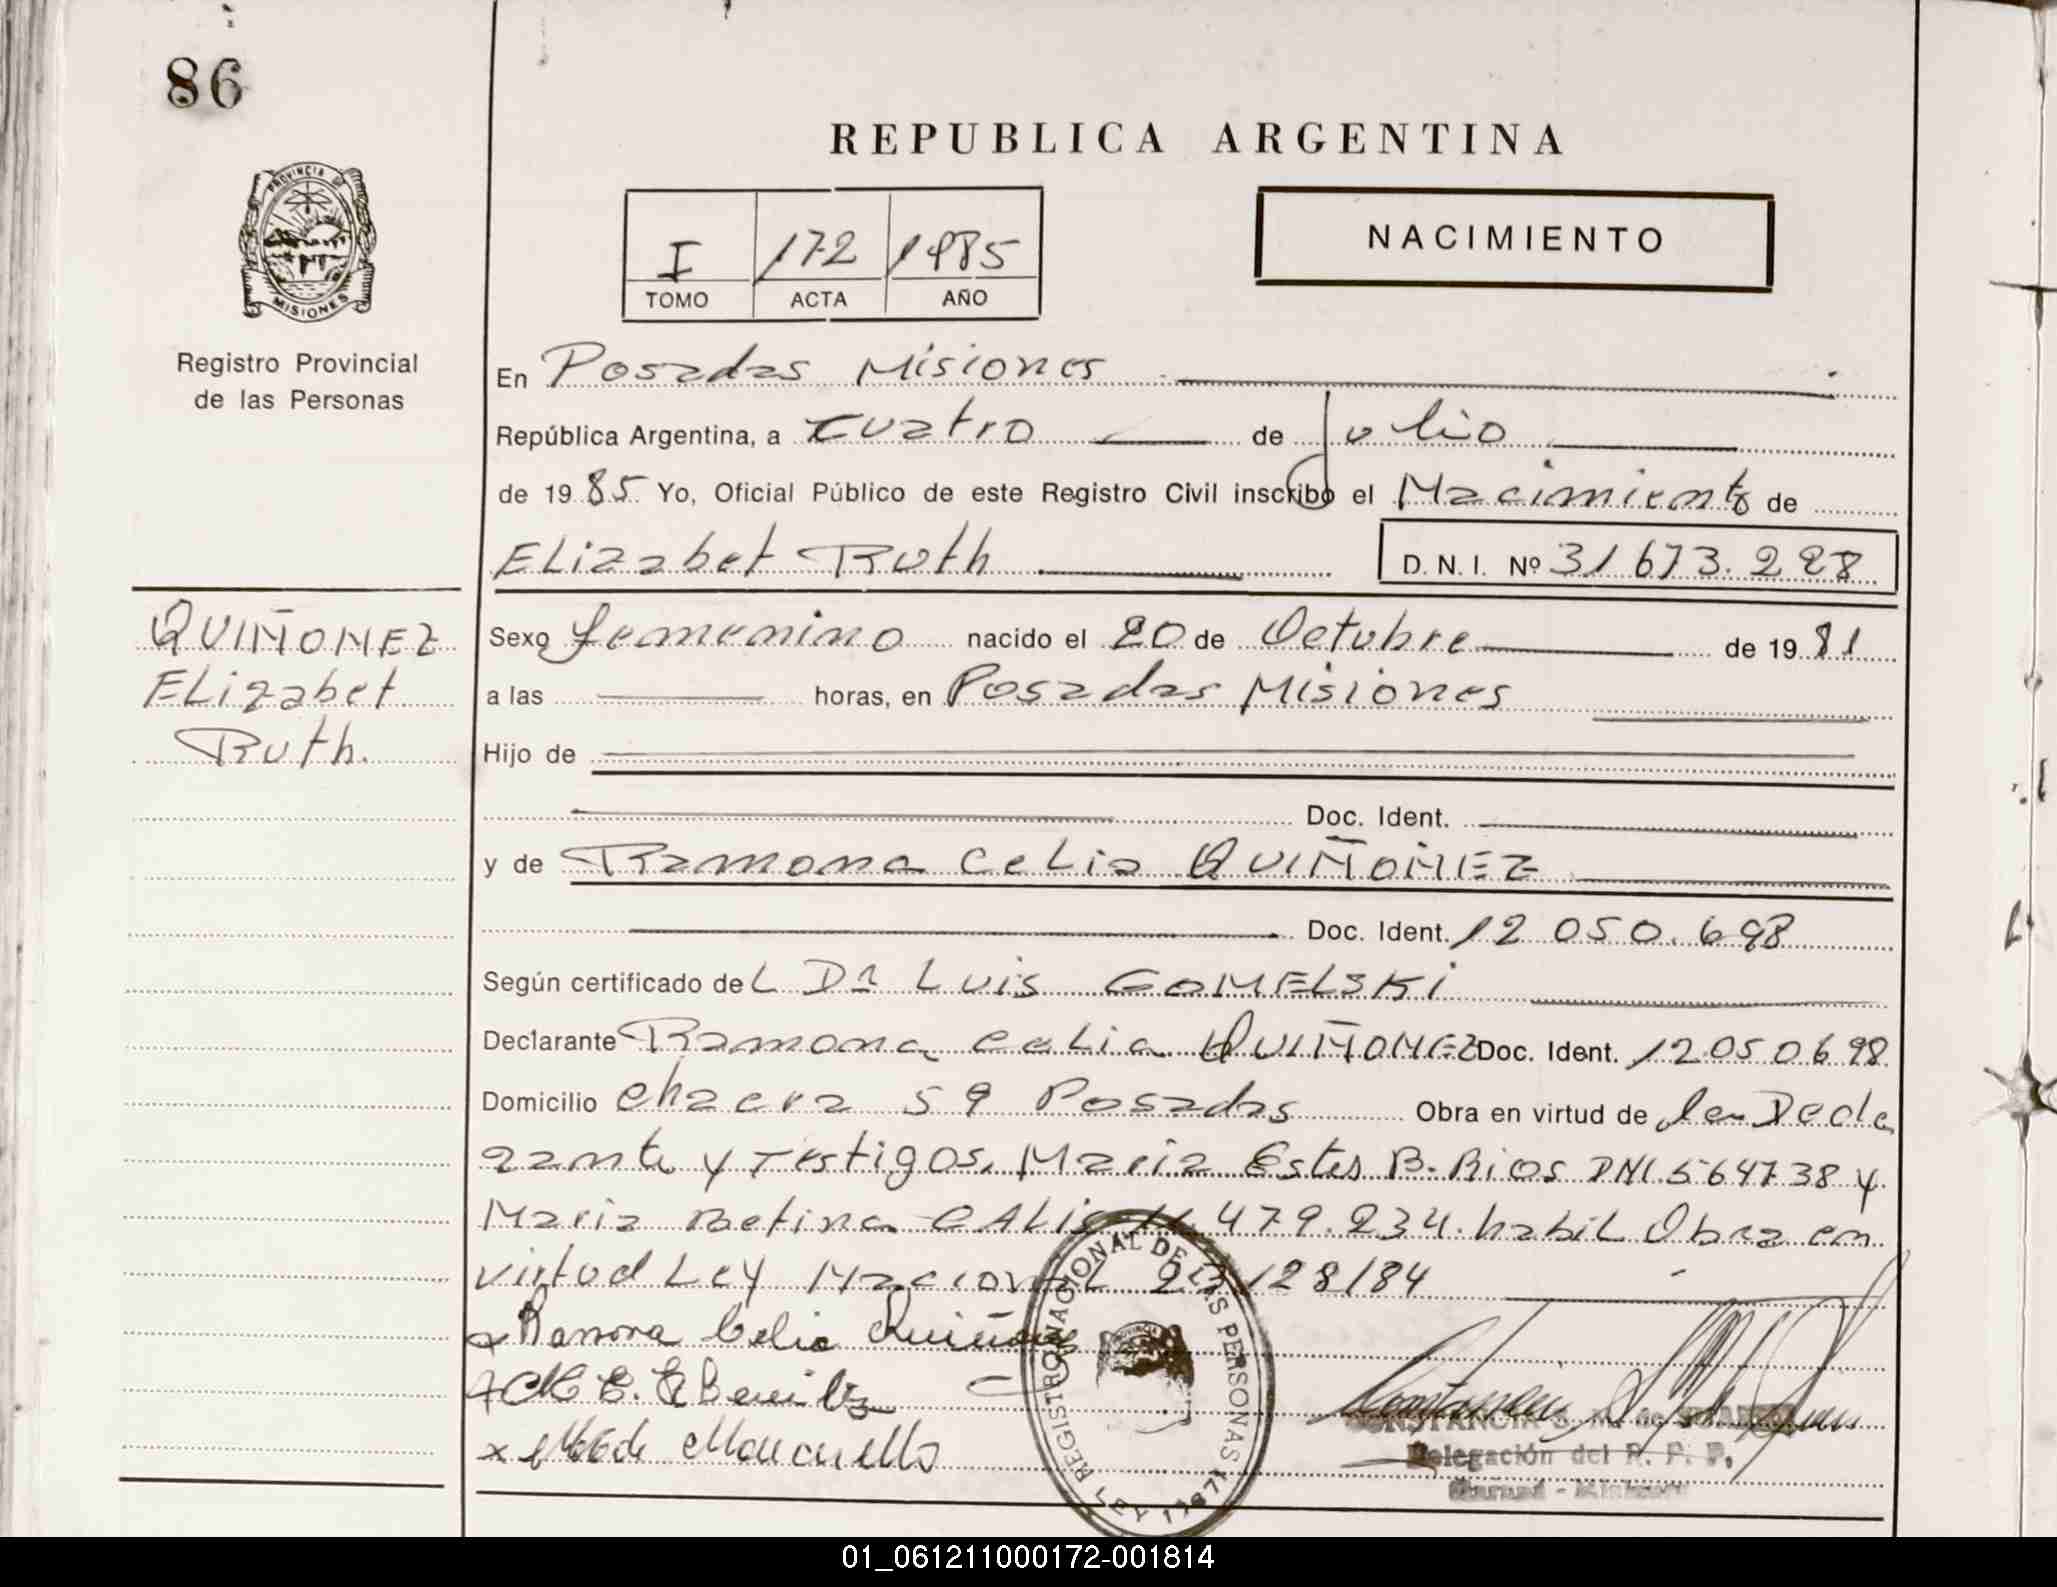 86
REPUBLICA ARGENTINA
PROVINCIA DE
MISIONES
I 172 1985
TOMO ACTA AÑO
NACIMIENTO
Registro Provincial
de las Personas
En Posadas Misiones
República Argentina, a cuatro de Julio
de 1985 Yo, Oficial Público de este Registro Civil inscribo el Nacimiento de
Elizabet Ruth D.N.I. Nº 31 673.228
QUIÑONEZ
Elizabet
Ruth.
Sexo femenino nacido el 20 de Octubre de 1981
a las horas, en Posadas Misiones
Hijo de
Doc. Ident.
y de Ramona Celia QUIÑONEZ
Doc. Ident. 12 050.698
Según certificado del Dr Luis GOMELSKI
Declarante Ramona Celia QUIÑONEZ Doc. Ident. 12.050698
Domicilio chacra 59 Posadas Obra en virtud de la Decla
rante y Testigos. Maria Ester B. Rios DNI. 5647.38 y
Maria Betina 11.479.234. habil Obra en
virtud Ley Nacional 128/84
x Ramona Celia Quiñonez
REGISTRO NACIONAL DE LAS PERSONAS
LEY 17671
CONSTANCIA S. M. de
Delegación del R. P. P.
01_061211000172-001814